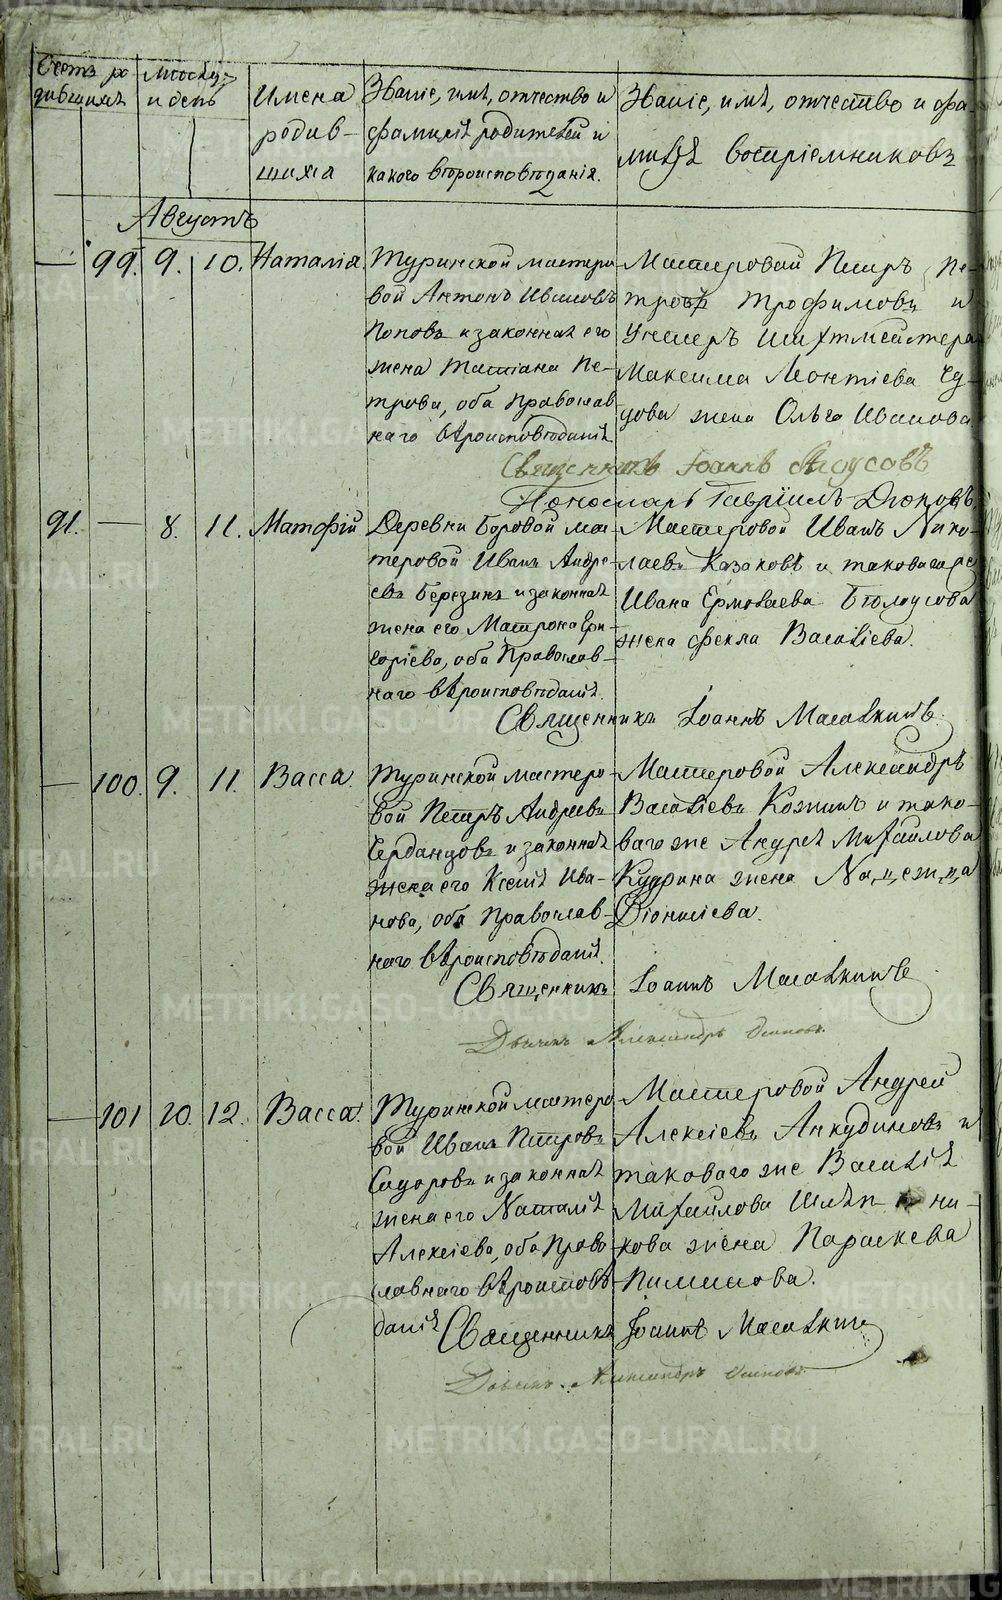 Счетъ ро
дившихъ
Месяцъ
и день
Имена
родив-
шихъ
Званіе, имя, отчество и
фамилія родителей и
какого вѣроисповѣданія.
Званіе, имя, отчество и фа-
милія воспріемниковъ
Августъ
99. 9. 10. Наталія
Туринской мастеро-
вой Антонъ Ивановъ
Поповъ и законная его
жена Татіана Пе-
трова, оба Православ-
наго вѣроисповѣданія
Мастеровой Петръ Пе-
тровъ Трофимовъ и
Унтеръ Шихтмейстера
Максима Леонтіева
жена Ольга Иванова
Священникъ Іоаннъ
Пономарь Гавріилъ
91. 8. 11. Матфій
Деревни Боровой мас-
теровой Иванъ Андре-
евъ Березинъ и законная
жена его Матрона Гри-
горіева, оба Православ-
наго вѣроисповѣданія.
Мастеровой Иванъ Нико-
лаевъ Казаковъ и таковаго же
Ивана Ермолаева Бѣлоусова
жена Фекла Василіева.
Священникъ Іоаннъ
100. 9. 11. Васса.
Туринской мастеро-
вой Петръ Андреевъ
Черданцовъ и законная
жена его Ксенія Ива-
нова, оба Православ-
наго вѣроисповѣданія.
Мастеровой Александръ
Василіевъ Кожинъ и тако-
ваго же Андрея Михайлова
Кудрина жена Надежда
Діонисіева.
Священникъ Іоаннъ
Дьячекъ Александръ Осиповъ.
101 10. 12. Васса.
Туринской мастеро-
вой Иванъ Петровъ
Сидоровъ и законная
жена его Наталія
Алексіева, оба Право-
славнаго вѣроисповѣ-
данія
Мастеровой Андрей
Алексіевъ Анкудиновъ и
таковаго же Василія
Михайлова
жена Параскева
Пименова.
Священникъ Іоаннъ
Дьячекъ Александръ Осиповъ
METRIKI.GASO-URAL.RU